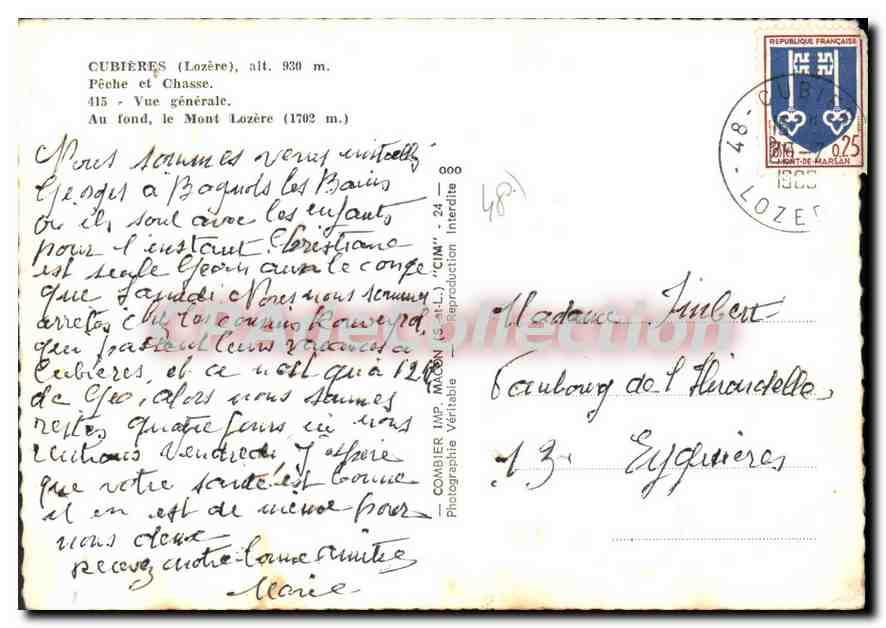 CUBIÈRES (Lozère), alt. 930 m.
Pêche et Chasse.
415 - Vue générale.
Au fond, le Mont Lozère (1702 m.)
Nous sommes venus
Georges à Bagnols les Bains
ou ils sont avec les enfants
pour l'instant. Christiane
est seule Geor aura le conge
que Samedi Nous nous sommes
arretes les cousins
qui passent leurs vacances à
Cubières, et ce n'est qu'à 12 K
de Geo, alors nous sommes
restes quatre jours ici nous
rentrons Vendredi J'espère
que votre santé est bonne
il en est de même pour
nous deux
recevez notre bonne amitié
Marie
— COMBIER IMP. MACON (S.-et-L.) "CIM" - 24 —
Photographie Véritable — Reproduction Interdite
48
REPUBLIQUE FRANÇAISE
0,25
MONT-DE-MARSAN
48 - CUBIÈ
LOZER
Madame Imbert
Faubourg de l'Hirondelle
13 Eyguières
Delcollection